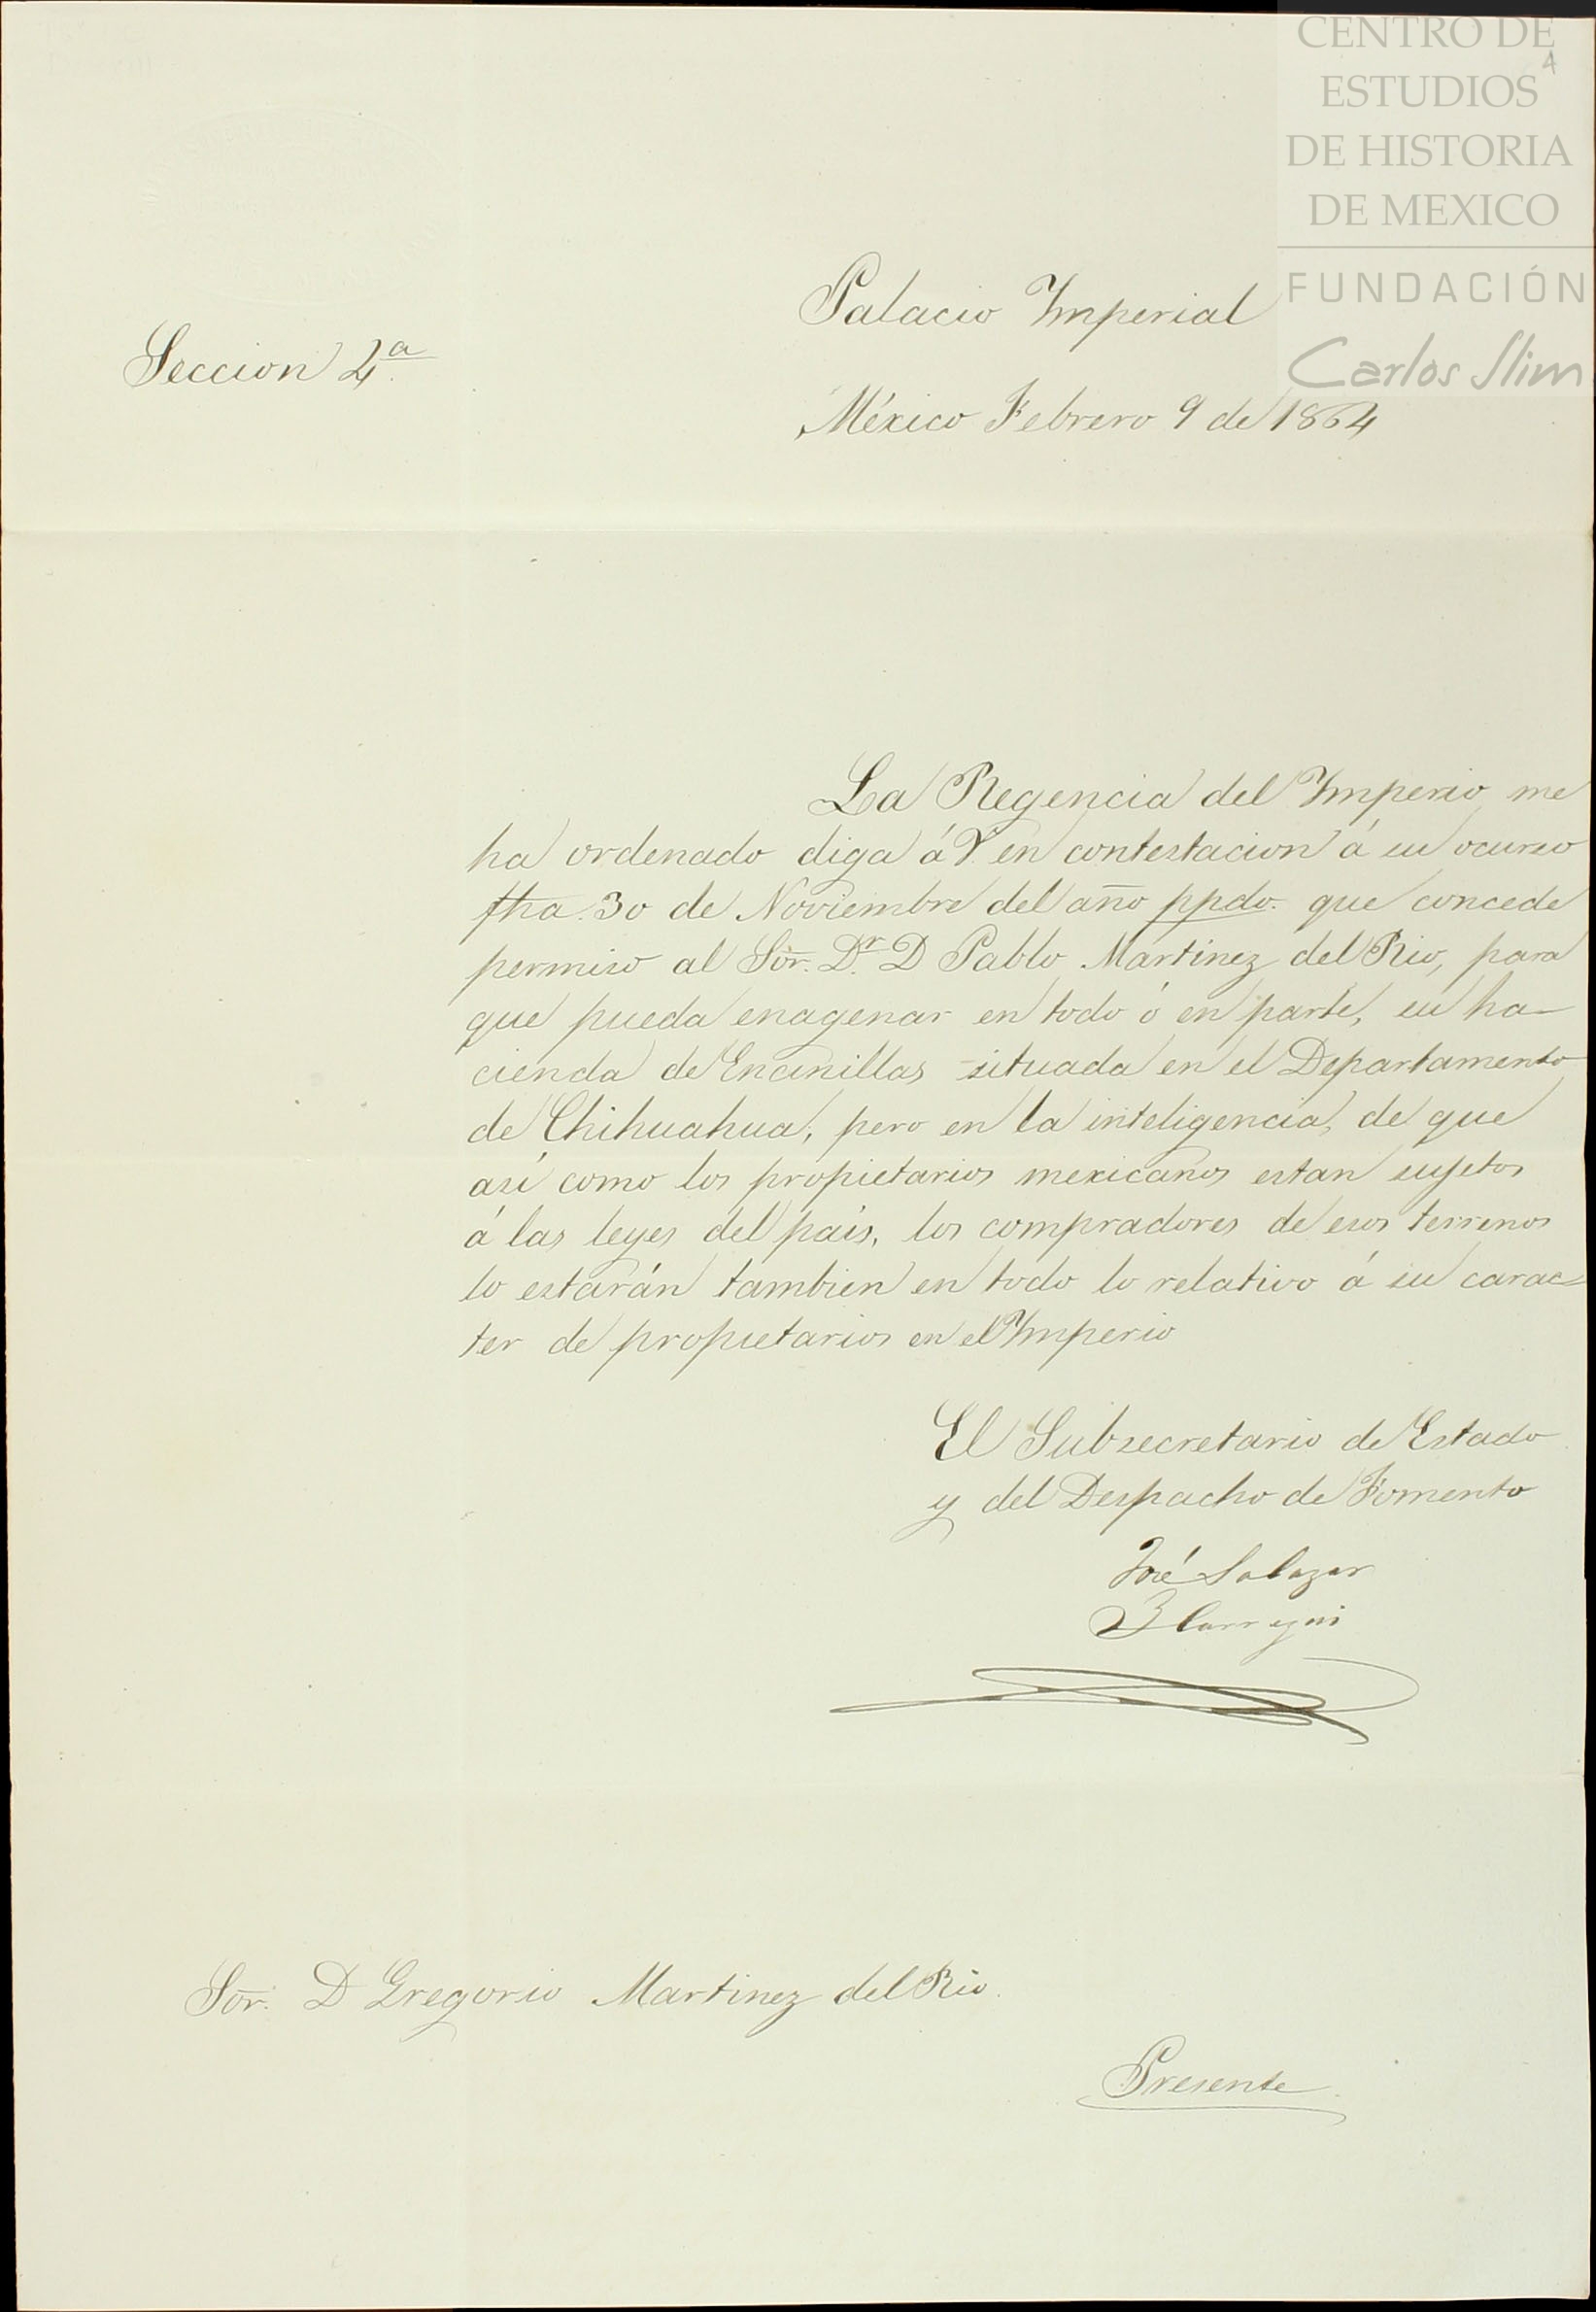 CENTRO DE
ESTUDIOS
4
DE HISTORIA
DE MEXICO
FUNDACIÓN
Carlos Slim
Palacio Imperial
Seccion 4.ª
México Febrero 9 de 1864
La Regencia del Imperio me
ha ordenado diga á V. en contestacion á su ocurso
fha. 30 de Noviembre del año ppdo. que concede
permiso al Sor. D.r D Pablo Martinez del Rio, para
que pueda enagenar en todo ó en parte, su ha-
cienda de Encinillas situada en el Departamento
de Chihuahua; pero en la inteligencia, de que
así como los propietarios mexicanos estan sujetos
á las leyes del país, los compradores de esos terrenos
lo estarán tambien en todo lo relativo á su carac-
ter de propietarios en el Imperio
El Subsecretario de Estado
y del Despacho de Fomento
José Salazar
Ilarregui
Sor. D Gregorio Martinez del Rio.
Presente.